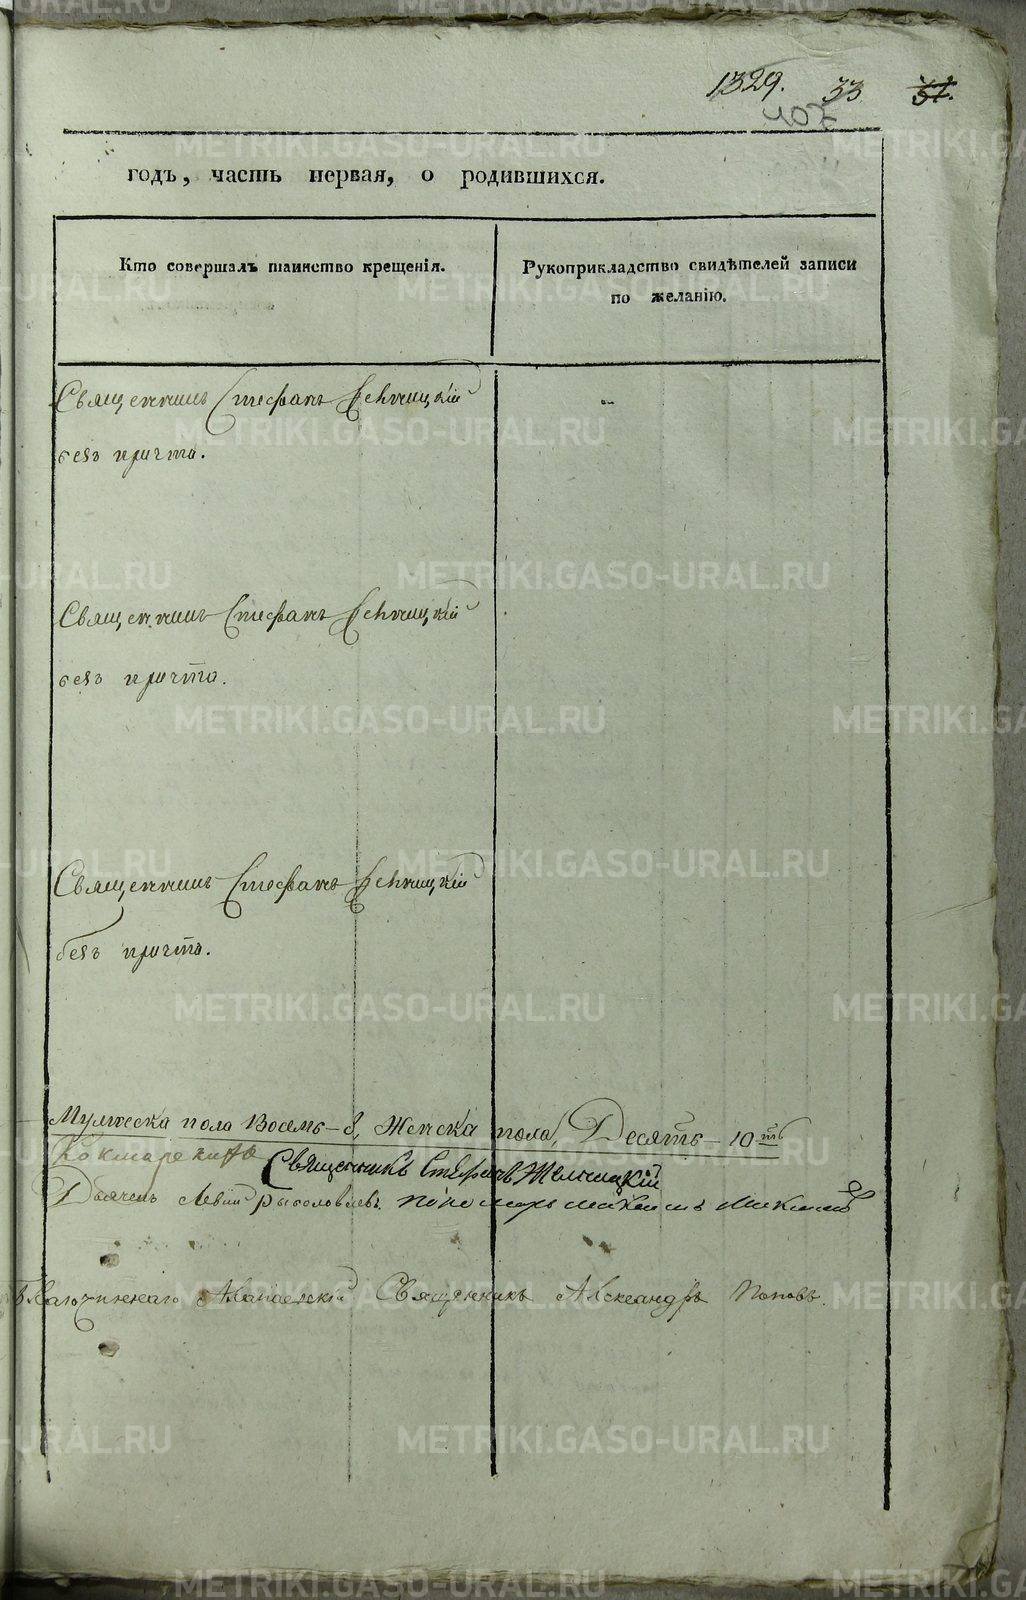 1329. 33 31.
407
годъ, часть первая, о родившихся.
Кто совершалъ таинство крещенія.
Рукоприкладство свидѣтелей записи
по желанію.
Священникъ Стефанъ Желницкій
безъ причта.
Священникъ Стефанъ Желницкій
безъ причта.
Священникъ Стефанъ Желницкій
безъ причта.
Мужеска пола Восемь – 8, Женска пола, Десять – 10-ть
Священникъ Стефанъ Желницкій
Дьячекъ Левій Рыболовлевъ. пономарь
Благочинный Алапаевскій Священникъ Александръ Поповъ.
METRIKI.GASO-URAL.RU